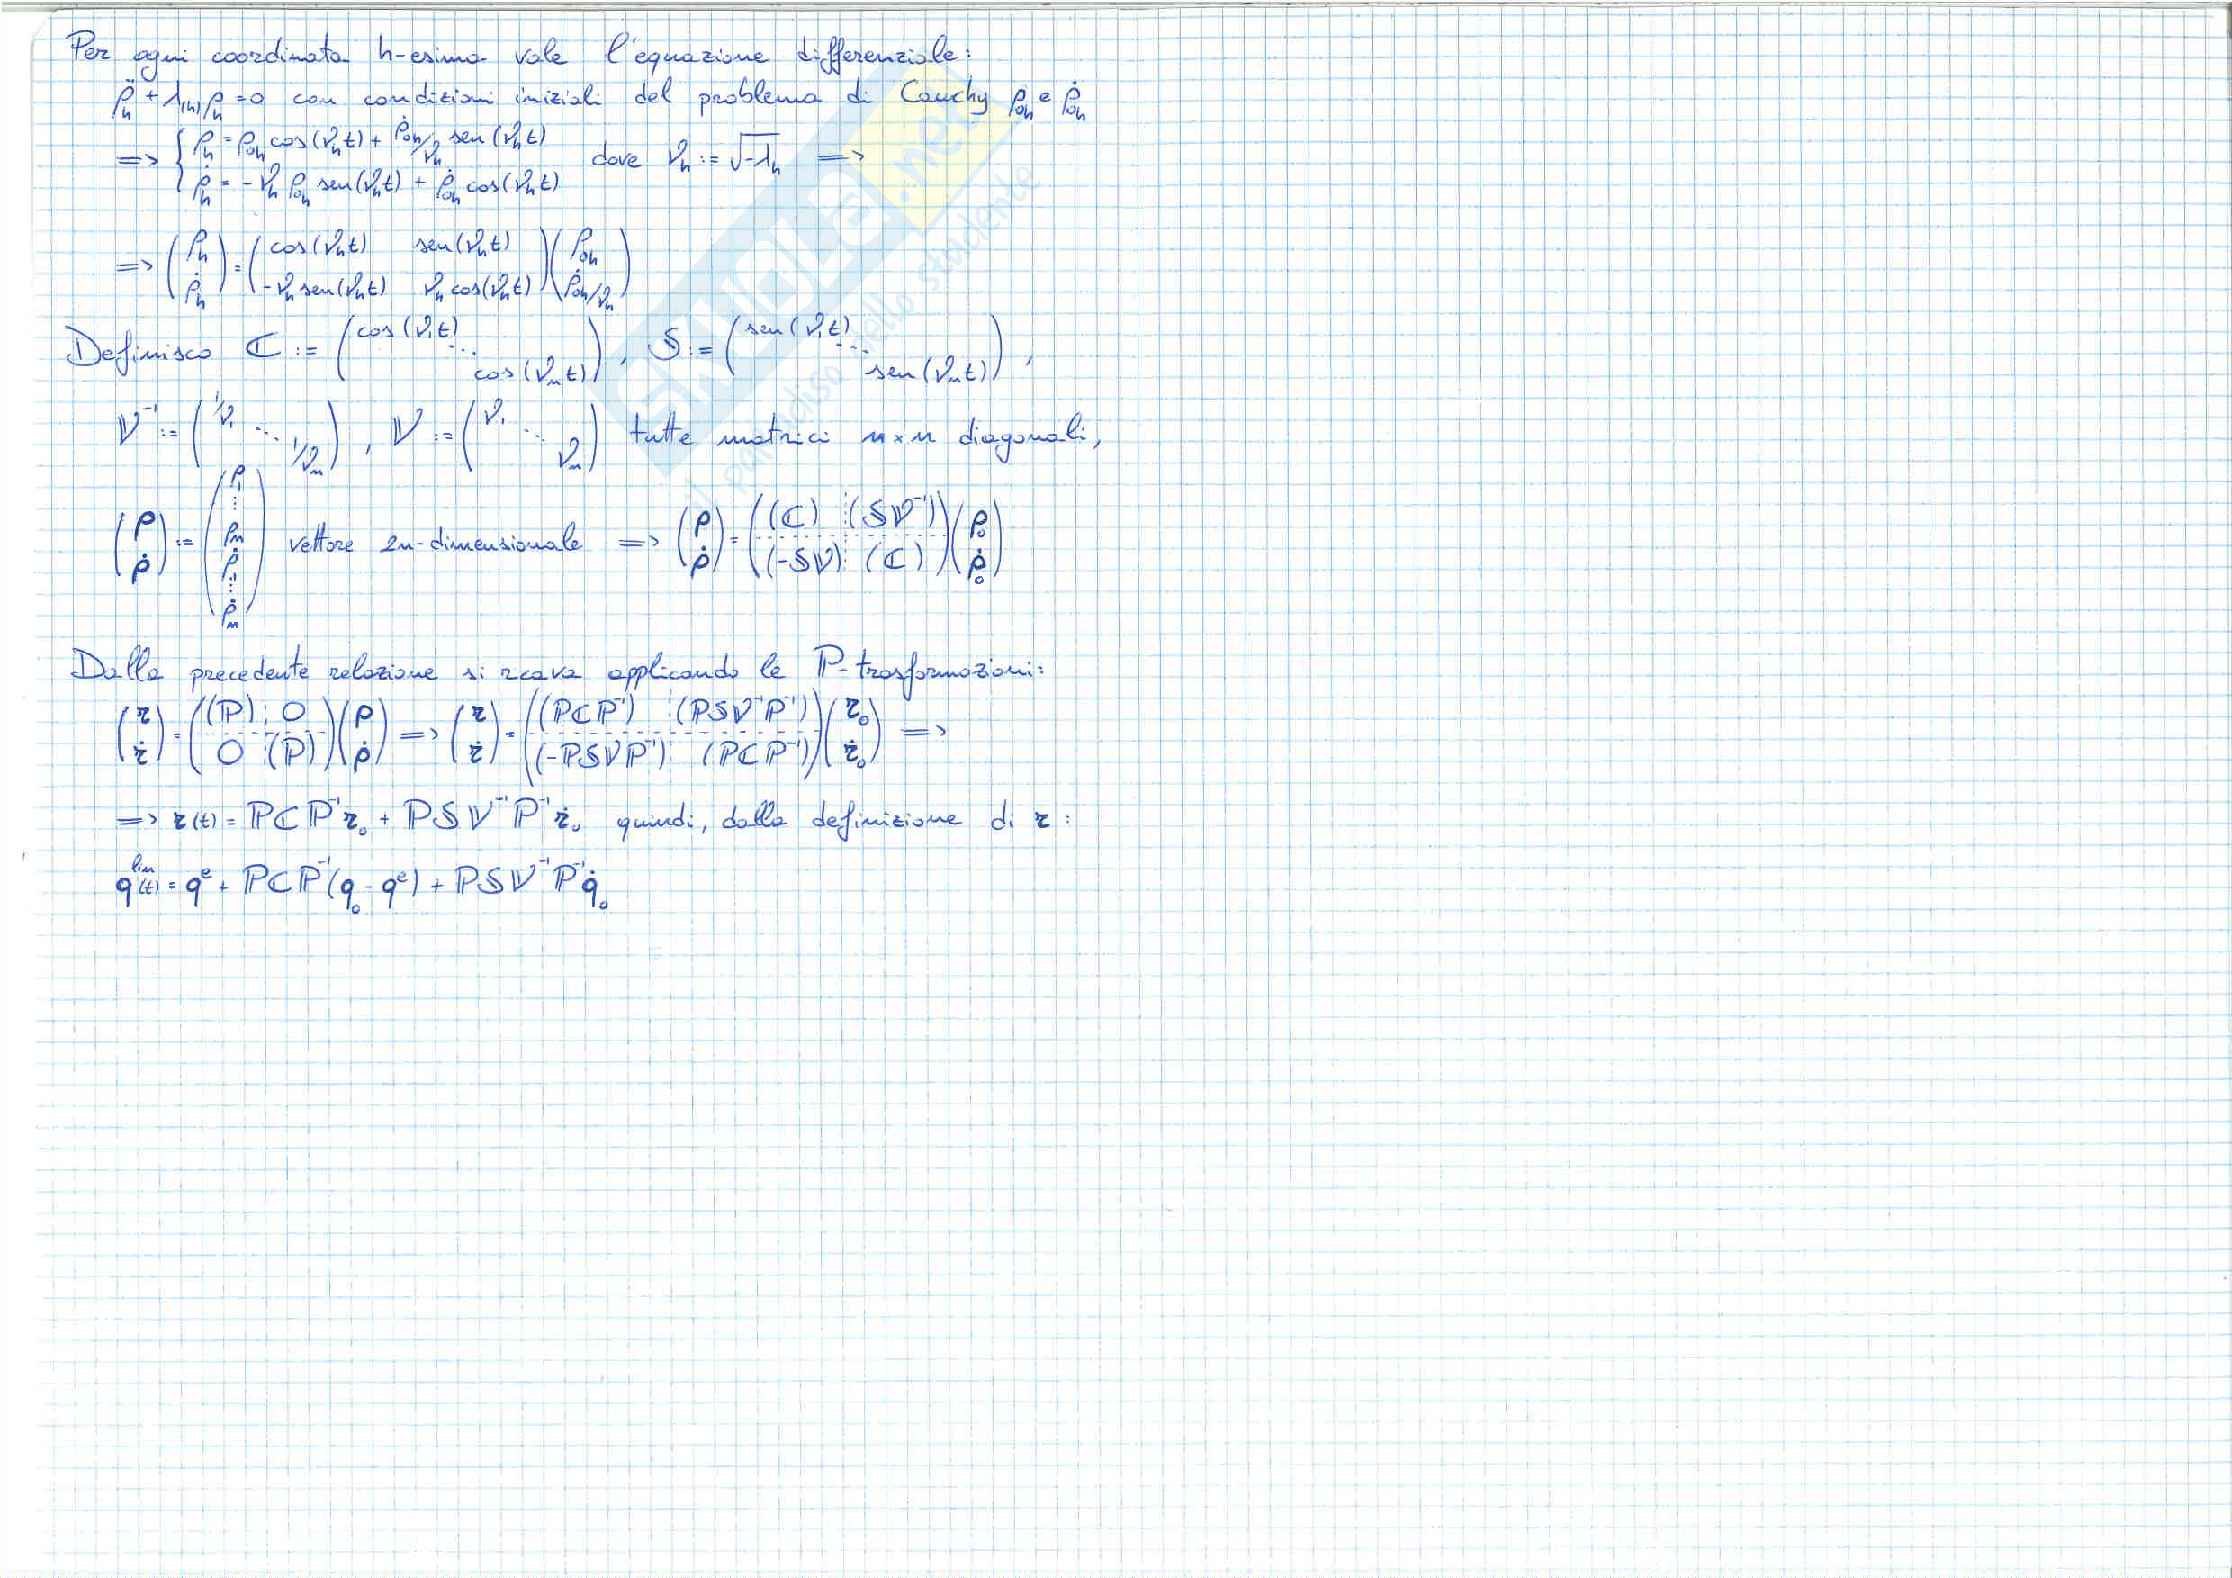 Per ogni coordinata h-esima vale l'equazione differenziale:
ρ̈_h + λ_(h) ρ_h = 0 con condizioni iniziali del problema di Cauchy ρ_0h e ρ̇_0h
=> { ρ_h = ρ_0h cos(ν_h t) + ρ̇_0h/ν_h sen(ν_h t)
ρ̇_h = -ν_h ρ_0h sen(ν_h t) + ρ̇_0h cos(ν_h t) dove ν_h := √-λ_h =>
=> (ρ_h ; ρ̇_h) = (cos(ν_h t) sen(ν_h t) ; -ν_h sen(ν_h t) ν_h cos(ν_h t)) (ρ_0h ; ρ̇_0h/ν_h)
Definisco ℂ := (cos(ν_1 t) ... cos(ν_n t)), 𝕊 := (sen(ν_1 t) ... sen(ν_n t)),
𝕍⁻¹ := (1/ν_1 ... 1/ν_n), 𝕍 := (ν_1 ... ν_n) tutte matrici n×n diagonali,
(ρ ; ρ̇) := (ρ_1 ... ρ_n ρ̇_1 ... ρ̇_n) vettore 2n-dimensionale => (ρ ; ρ̇) = ((ℂ) (𝕊𝕍⁻¹) ; (-𝕊𝕍) (ℂ)) (ρ_0 ; ρ̇_0)
Dalla precedente relazione si rcava applicando le ℙ-trasformazioni:
(r ; ṙ) = ((ℙ) 0 ; 0 (ℙ)) (ρ ; ρ̇) => (r ; ṙ) = ((ℙℂℙ⁻¹) (ℙ𝕊𝕍⁻¹ℙ⁻¹) ; (-ℙ𝕊𝕍ℙ⁻¹) (ℙℂℙ⁻¹)) (r_0 ; ṙ_0) =>
=> r(t) = ℙℂℙ⁻¹r_0 + ℙ𝕊𝕍⁻¹ℙ⁻¹ṙ_0 quindi, dalla definizione di r:
q^lin(t) = q^e + ℙℂℙ⁻¹(q_0 - q^e) + ℙ𝕊𝕍⁻¹ℙ⁻¹q̇_0
skuola.net
il paradiso dello studente